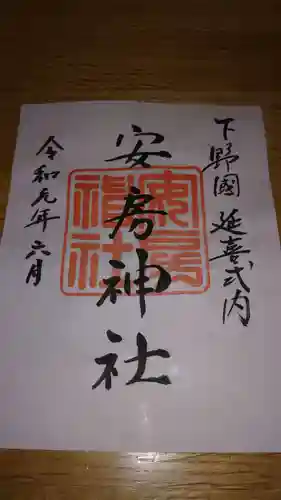 下野國 延喜式内
安房神社
令和元年六月
安房
神社